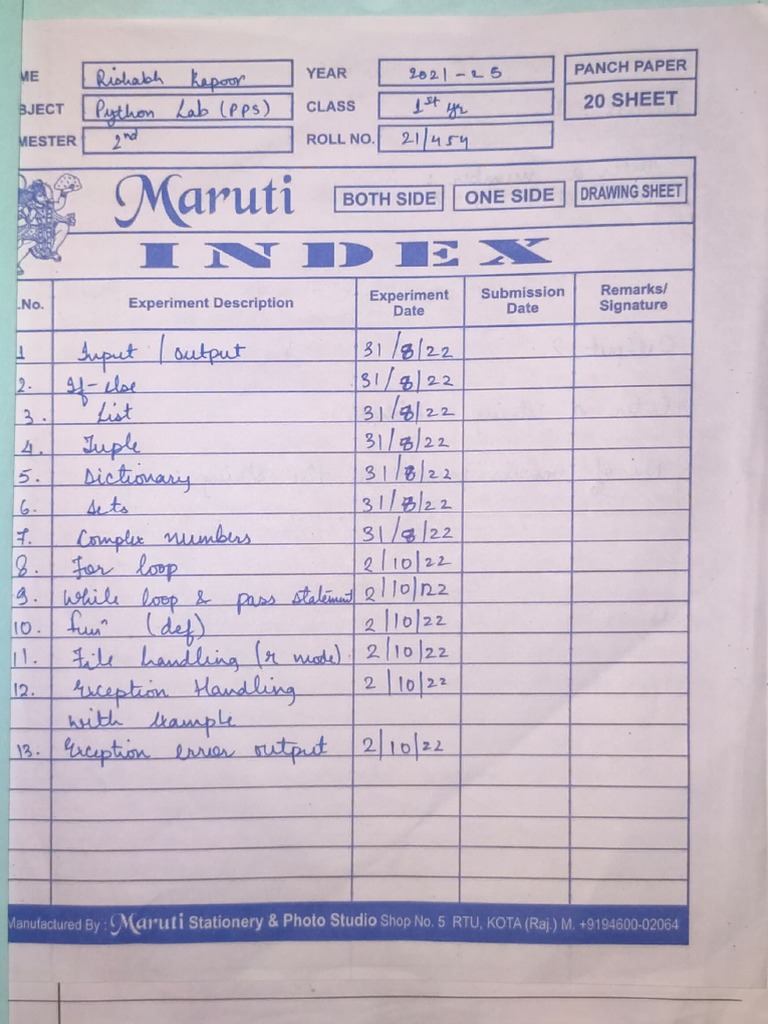 ME Rishabh Kapoor YEAR 2021-25 PANCH PAPER
BJECT Python Lab (PPS) CLASS 1st yr 20 SHEET
MESTER 2nd ROLL NO. 21/454
Maruti BOTH SIDE ONE SIDE DRAWING SHEET
INDEX
.No. Experiment Description Experiment Date Submission Date Remarks/ Signature
1 Input / output 31/8/22
2. If-else 31/8/22
3. List 31/8/22
4. Tuple 31/8/22
5. Dictionary 31/8/22
6. Sets 31/8/22
7. Complex numbers 31/8/22
8. For loop 2/10/22
9. While loop & pass statement 2/10/22
10. funⁿ (def) 2/10/22
11. File handling (r mode) 2/10/22
12. Exception Handling 2/10/22
with Example
13. Exception error output 2/10/22
Manufactured By : Maruti Stationery & Photo Studio Shop No. 5 RTU, KOTA (Raj.) M. +9194600-02064